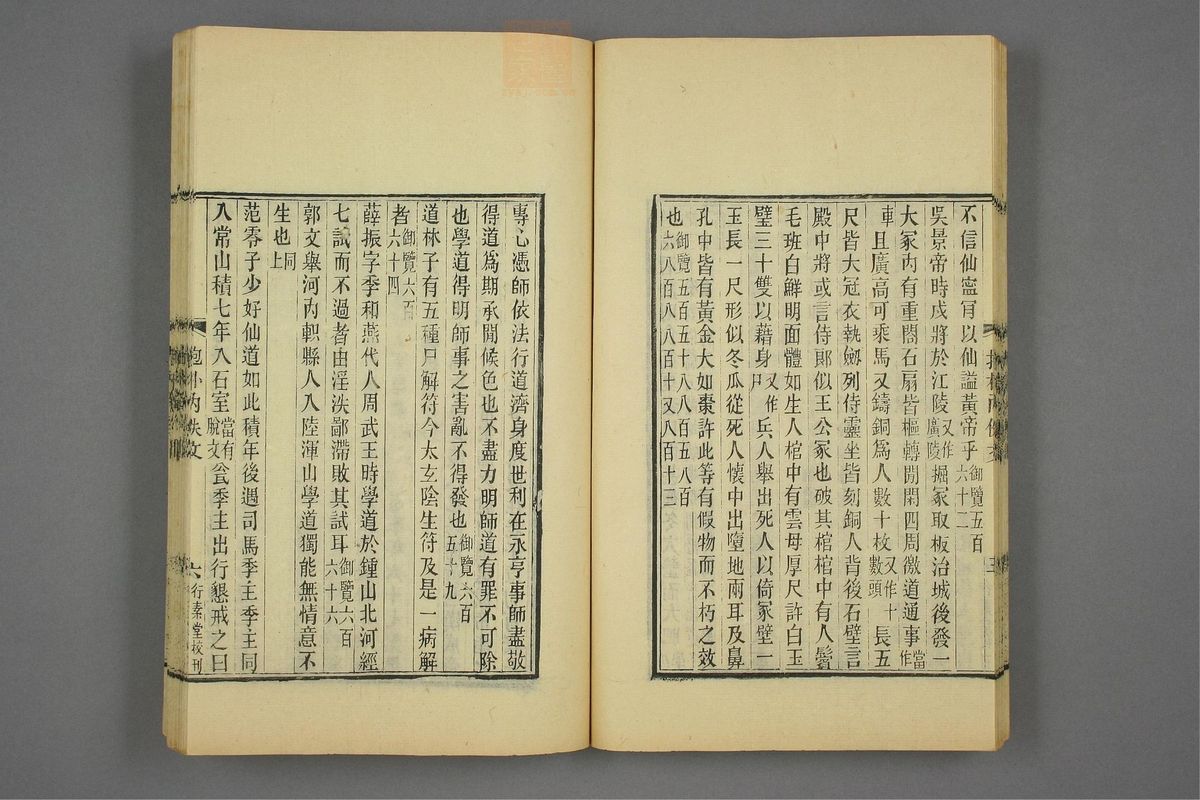 不信仙寧肎以仙謚黃帝乎御覽五百六十二
吳景帝時戍將於江陵又作廣陵掘冢取板治城後發一
大冢內有重閤石扇皆樞轉開閉四周徼道通事當作
車且廣高可乘馬又鑄銅爲人數十枚又作十數頭長五
尺皆大冠衣執劔列侍靈坐皆刻銅人背後石壁言
殿中將或言侍郎似王公冢也破其棺棺中有人鬢
毛班白鮮明面體如生人棺中有雲母厚尺許白玉
璧三十雙以藉身又作尸兵人舉出死人以倚冢壁一
玉長一尺形似冬瓜從死人懷中出墮地兩耳及鼻
孔中皆有黃金大如棗許此等有假物而不朽之效
也御覽五百五十八八百五八百六八百八八百十又八百十三
專心憑師依法行道濟身度世利在永亨事師盡敬
得道爲期承閒候色也不盡力明師道有罪不可除
也學道得明師事之害亂不得發也御覽六百五十九
道林子有五種尸解符今太玄陰生符及是一病解
者御覽六百六十四
薛振字季和燕代人周武王時學道於鍾山北河經
七試而不過者由淫泆鄙滯敗其試耳御覽六百六十六
郭文舉河內軹縣人入陸渾山學道獨能無情意不
生也同上
范零子少好仙道如此積年後遇司馬季主季主同
入常山積七年入石室當有脫文瓮季主出行懇戒之曰
抱朴內佚文
六
行素堂校刊